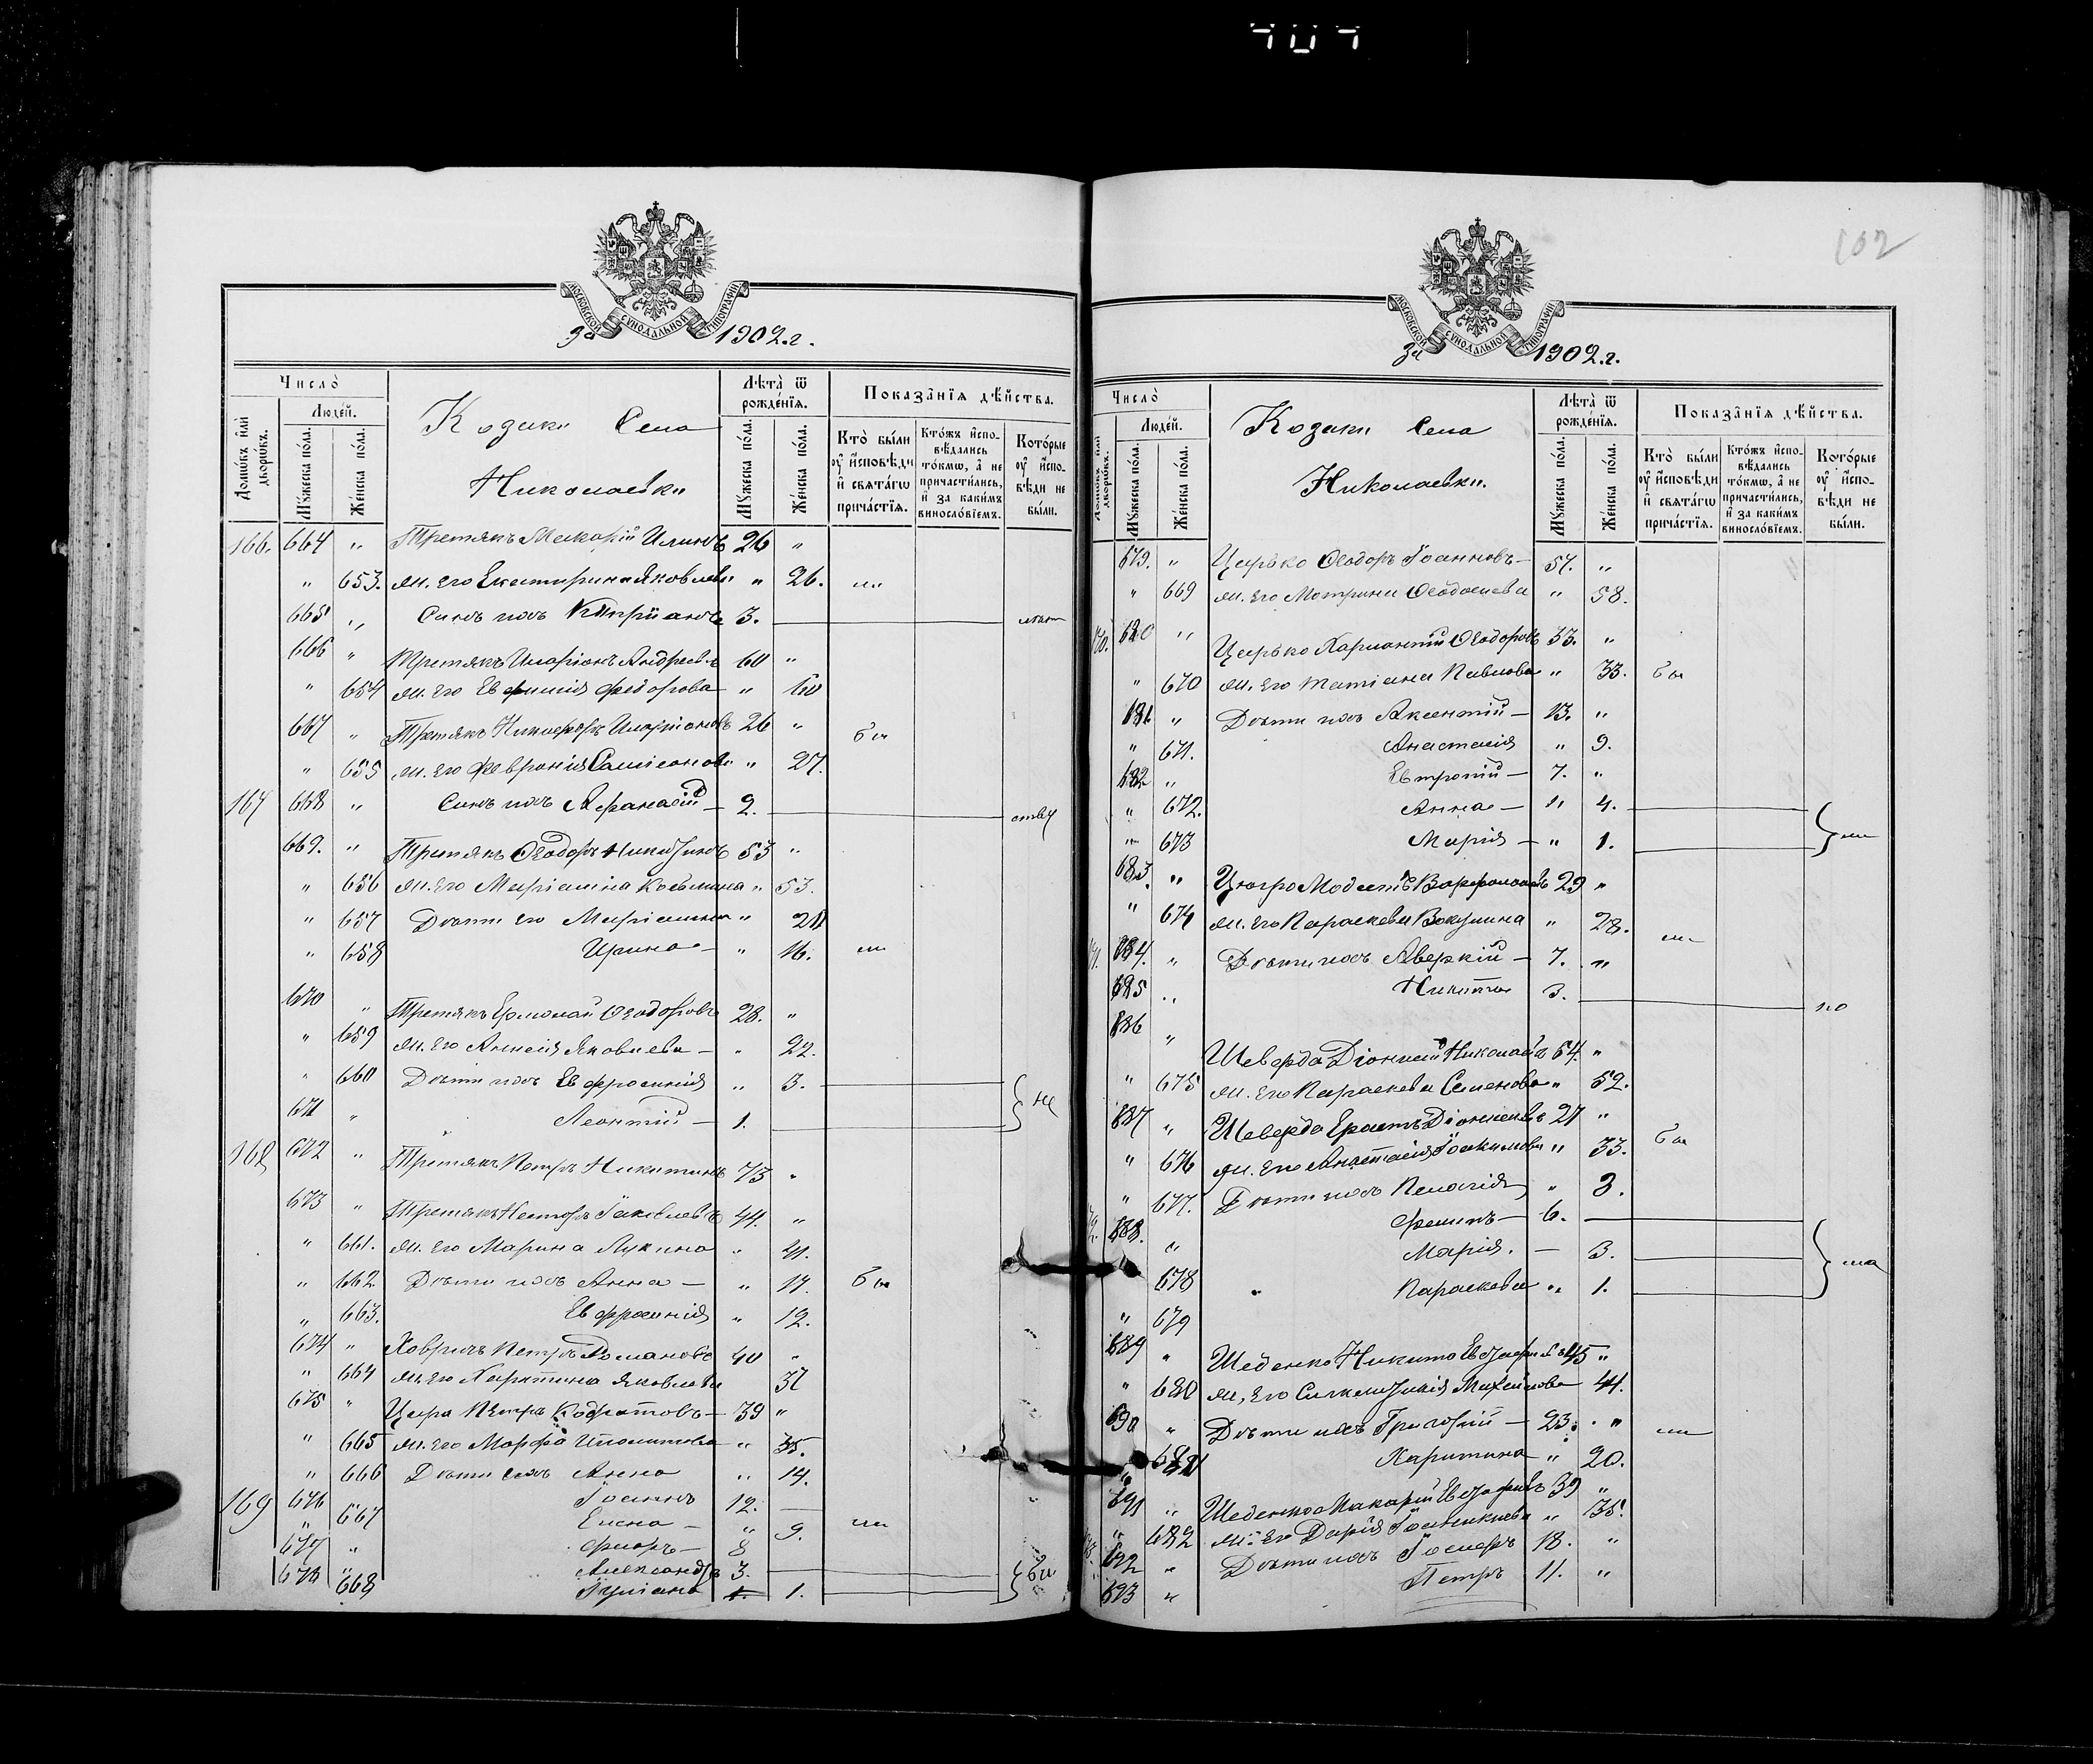 102
МОСКОВСКОЙ СѴНОДАЛЬНОЙ ТИПОГРАФІИ
За 1902.г.
Число̀
Домѡ́въ и҆лѝ дворѡ́въ.
Люде́й.
Мꙋ́жеска по́ла.
Же́нска по́ла.
Козаки Села
Николаевки
Лѣ́та ѿ рожде́нїѧ.
Мꙋ́жеска по́ла.
Же́нска по́ла.
Показа̑нїѧ дѣ́йства.
Кто̀ бы́ли оу҆ и҆сповѣ́ди и҆ свѧта́гѡ прича́стїѧ.
Кто́жъ и҆спо-вѣ́дались то́кмѡ, а҆ не причасти́лись, и҆ за каки́мъ виносло́вїемъ.
Кото́рые оу҆ и҆спо-вѣ́ди не бы́ли.
166. 664 " Третякъ Макарій Илинъ 26 "
" 653. ж. его Екатерина Яковлева " 26. ли
665 " Сынъ ихъ Кипріанъ 3.
666 " Третякъ Иларіонъ Андреевъ 60 "
" 654 ж. его Евфимія Федорова " 60
667 " Третякъ Никифоръ Иларіоновъ 26 " бы
" 655 ж. его Февронія Самсонова " 27.
167 668 " Сынъ ихъ Афанасій 2.
669. " Третякъ Ѳеодоръ Никитинъ 53 "
" 656 ж. его Маріамна Козьмина " 53.
" 657 Дѣти его Маріамна " 21
" 658 Ирина " 16. ли
670 " Третякъ Ермолай Ѳеодоровъ 28. "
" 659 ж. его Анисія Яковлева " 22.
" 660 Дѣти ихъ Евфросинія " 3.
671 " Леонтій 1. не
168 672 " Третякъ Петръ Никитинъ 73 "
673 " Третякъ Несторъ Іаковлевъ 44. "
" 661. ж. его Марина Лукина " 41.
" 662 Дѣти ихъ Анна " 17. бы
" 663. Евфросинія " 12.
674 " Ховричъ Петръ Романовъ 40 "
" 664 ж. его Харитина Яковлева 37
675 " Цыра Петръ Кодратовъ 39 "
" 665 ж. его Марфа Иполитова " 35.
" 666 Дѣти ихъ Анна " 14.
169 676 Іоаннъ 12.
" 667 Елена " 9. ли
677 " Флоръ 8
678 " Александръ 3.
668 Іуліана 1. бы
За 1902.г.
Число̀
Домѡ́въ и҆лѝ дворѡ́въ.
Люде́й.
Мꙋ́жеска по́ла.
Же́нска по́ла.
Козаки Села
Николаевки.
Лѣ́та ѿ рожде́нїѧ.
Мꙋ́жеска по́ла.
Же́нска по́ла.
Показа̑нїѧ дѣ́йства.
Кто̀ бы́ли оу҆ и҆сповѣ́ди и҆ свѧта́гѡ прича́стїѧ.
Кто́жъ и҆спо-вѣ́дались то́кмѡ, а҆ не причасти́лись, и҆ за каки́мъ виносло́вїемъ.
Кото́рые оу҆ и҆спо-вѣ́ди не бы́ли.
679. " Царько Ѳеодоръ Іоанновъ 57. "
" 669 ж. его Мотрина Ѳеодосіева " 58.
170. 680 " Царько Харлампій Ѳеодоровъ 33. "
" 670 ж. его Татіана Павлова " 33. бы
681 " Дѣти ихъ Аксентій 13. "
" 671. Анастасія " 9.
682 " Евтропій 7. "
" 672. Анна " 4.
" 673 Марія " 1.
683. " Модестъ Варфоломеевъ 29 "
" 674 ж. его Параскева Вакулина " 28. ли
171. 684. " Дѣти ихъ Аверкій 7. "
685 " Никита 3.
686 " Шеверда Діонисій Николаевъ 54. "
" 675 ж. его Параскева Семенова " 52.
687 " Шеверда Ерастъ Діонисіевъ 27 "
" 676 ж. его Анастасія Іоакимова " 33. бы
" 677. Дѣти ихъ Пелагія " 3.
172. 688. " Филипъ 6.
678 Марія. 3.
" 679 Параскева " 1.
689 " Шеденко Никита Евграфовъ 45 "
" 680 ж. его Михайлова 44.
690 " Дѣти ихъ Григорій 23. " ли
" 681 Харитина " 20.
691 " Шеденко Макарій Евграфовъ 39 "
" 682 ж. его Дарія Іоанникіева " 35.
692 " Дѣти ихъ Іосифъ 18. "
693 " Петръ 11. "